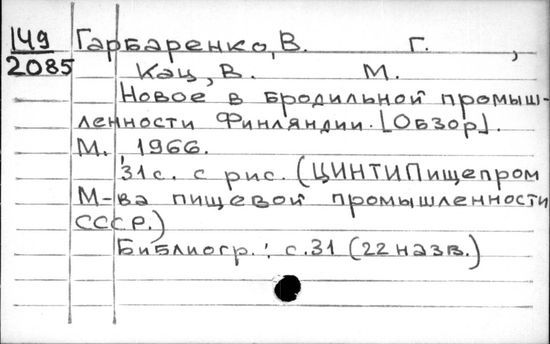 149 Гарбаренко, В. Г.,
2085 Кац, В. М.
Новое в бродильной промыш-
ленности Финляндии. [Обзор].
М., 1966.
31с. с рис. (ЦИНТИПищепром
М-ва пищевой промышленности
СССР.)
Библиогр.: с.31 (22 назв.)